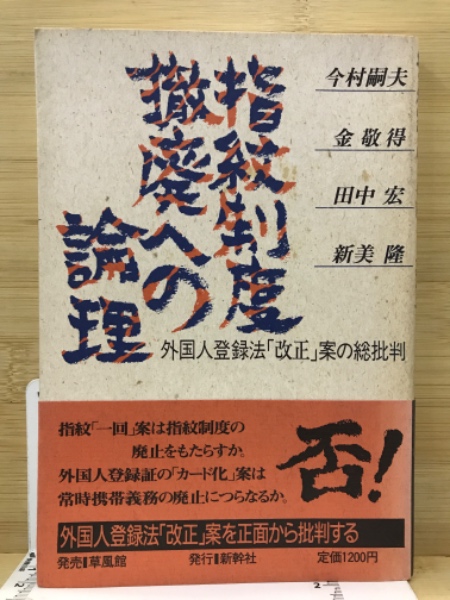 指紋制度
撤廃への
論理
今村嗣夫
金敬得
田中宏
新美隆
外国人登録法「改正」案の総批判
指紋「一回」案は指紋制度の
廃止をもたらすか。
外国人登録証の「カード化」案は
常時携帯義務の廃止につらなるか。
否!
外国人登録法「改正」案を正面から批判する
発売 草風館
発行 新幹社
定価1200円